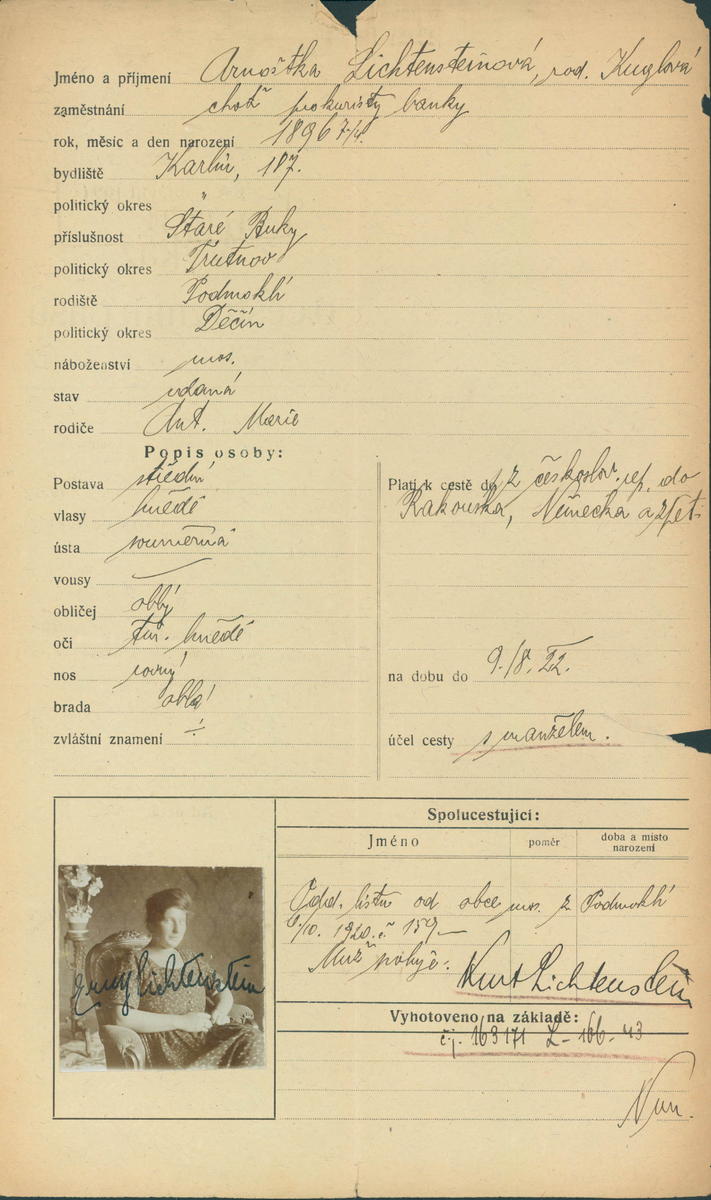 Jméno a příjmení Arnoštka Lichtensteinová, roz. Kuglová
zaměstnání choť prokuristy banky
rok, měsíc a den narození 1896 7/4.
bydliště Karlín, 187.
politický okres "
příslušnost Staré Buky
politický okres Trutnov
rodiště Podmoklí
politický okres Děčín
náboženství mos.
stav vdaná
rodiče Ant. Marie
Popis osoby:
Postava střední
vlasy hnědé
ústa souměrná
vousy —
obličej oblý
oči tm. hnědé
nos rovný
brada oblá
zvláštní znamení ÷
Platí k cestě do z českoslov. rep. do
Rakouska, Německa a zpět.
na dobu do 9./8. 22.
účel cesty s manželem.
Spolucestující:
Jméno poměr doba a místo narození
Odd. listu od obce mos. z Podmoklí
1920 č. 159
Muž pobyč: Kurt Lichtenstein
Erny Lichtenstein
Vyhotoveno na základě:
čj. 163171 Z-166-43